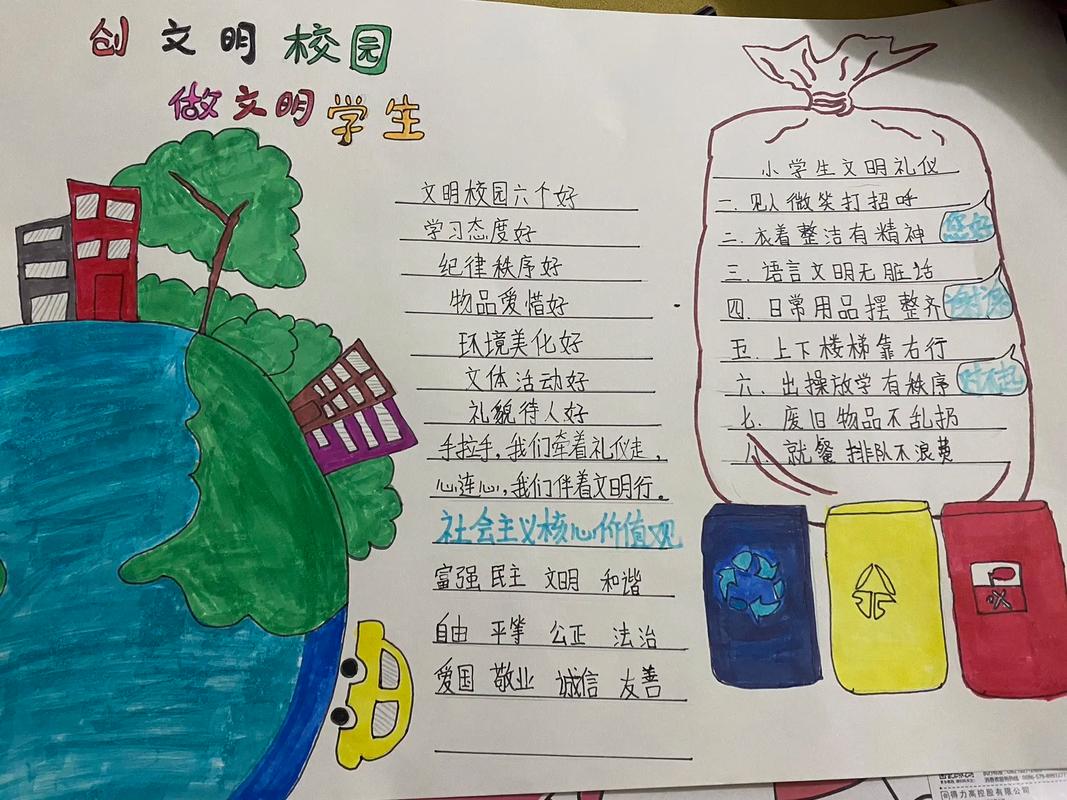 创文明校园
做文明学生
文明校园六个好
学习态度好
纪律秩序好
物品爱惜好
环境美化好
文体活动好
礼貌待人好
手拉手，我们牵着礼仪走，
心连心，我们伴着文明行。
社会主义核心价值观
富强 民主 文明 和谐
自由 平等 公正 法治
爱国 敬业 诚信 友善
小学生文明礼仪
一.见人微笑打招呼
二.衣着整洁有精神
您好
三.语言文明无脏话
四.日常用品摆整齐
谢谢
五.上下楼梯靠右行
六.出操放学有秩序
对不起
七.废旧物品不乱扔
八.就餐排队不浪费
得力高控股有限公司